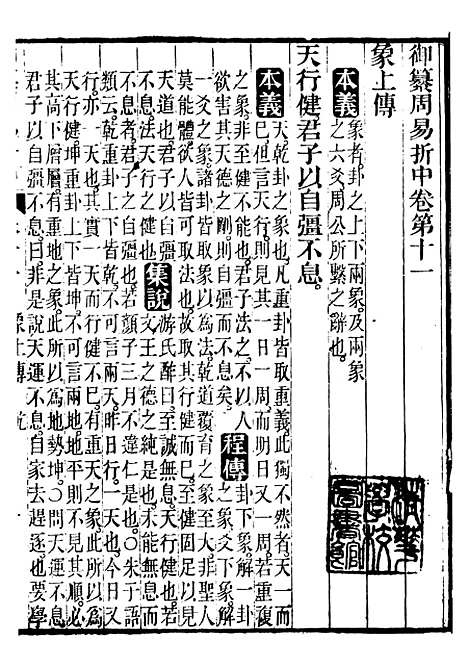 御纂周易折中卷第十一
象上傳
本義 象者卦之上下兩象及兩象
之六爻周公所繫之辭也。
天行健君子以自彊不息。
本義 天乾卦之象也。凡重卦皆取重義。此獨不然者天一而
已。但言天行則見其一日一周而明日又一周。若重複
之象。非至健不能也。君子法之。不以人
欲害其天德之剛。則自彊而不息矣。
程傳 卦下象。解一卦
之象。爻下象。解
一爻之象。諸卦皆取象以爲法。乾道覆育之象至大。非聖人
莫能體。欲人皆可取法也。故取其行健而已。至健固足以見
天道也。君子以自彊
不息。法天行之健也。
集說 游氏酢曰。至誠無息。天行健也。若
文王之德之純是也。未能無息而
不息者。君子之自彊也。若顏子三月不違仁是也。○朱子語
類云。乾重卦上下皆乾。不可言兩天。昨日行一天也。今日又
行。亦一天也。其實一天而行健不已。有重天之象。此所以爲
天行健。坤重卦上下皆坤。不可言兩地。地平則不見其順。必
其高下層層。有重地之象。此所以爲地勢坤。○問天運不息。
君子以自彊不息。曰非是說天運不息。自家去趕逐。也要學
清華
學校
圖書館